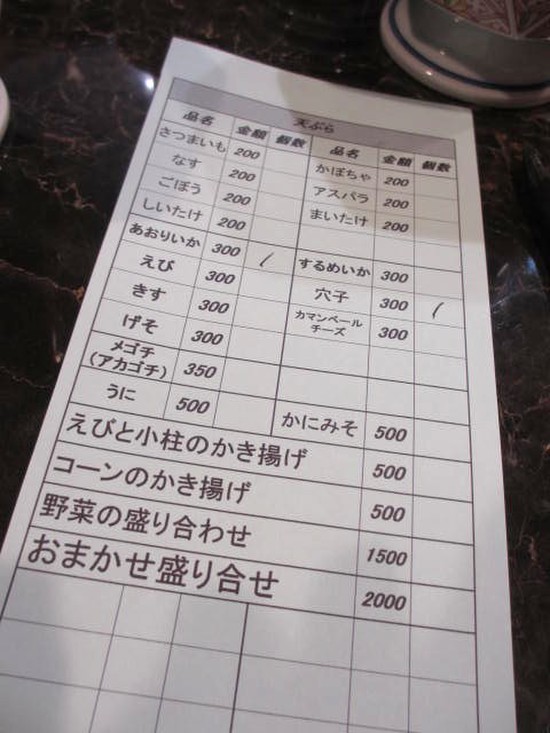 天ぷら
品名 金額 個数 品名 金額 個数
さつまいも 200 かぼちゃ 200
なす 200 アスパラ 200
ごぼう 200 まいたけ 200
しいたけ 200
あおりいか 300 / するめいか 300
えび 300 穴子 300 /
きす 300 カマンベール
チーズ 300
げそ 300
メゴチ
(アカゴチ) 350
うに 500 かにみそ 500
えびと小柱のかき揚げ 500
コーンのかき揚げ 500
野菜の盛り合わせ 1500
おまかせ盛り合せ 2000